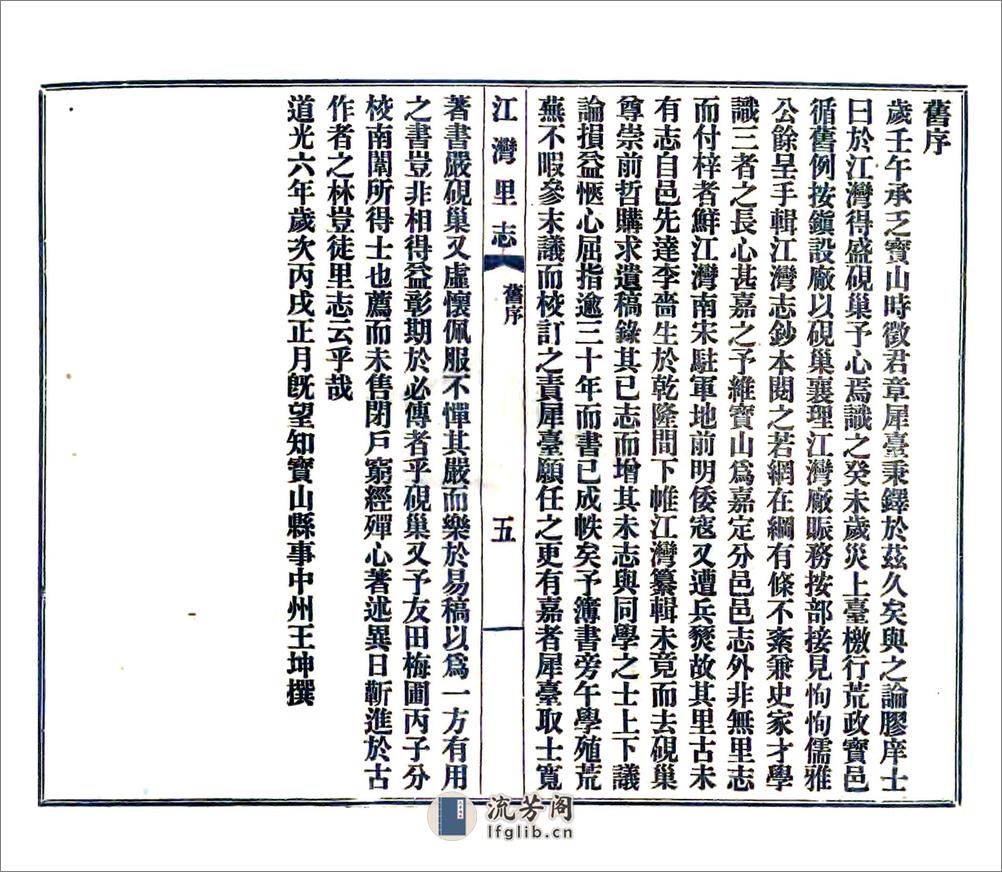 舊序
歲壬午承乏寶山時徵君章犀臺秉鐸於茲久矣與之論膠庠士
曰於江灣得盛硯巢予心焉識之癸未歲災上臺檄行荒政寶邑
循舊例按鎭設廠以硯巢襄理江灣廠賑務按部接見恂恂儒雅
公餘呈手輯江灣志鈔本閱之若網在綱有條不紊兼史家才學
識三者之長心甚嘉之予維寶山爲嘉定分邑邑志外非無里志
而付梓者鮮江灣南宋駐軍地前明倭寇又遭兵燹故其里古未
有志自邑先達李嗇生於乾隆間下帷江灣纂輯未竟而去硯巢
尊崇前哲購求遺稿錄其已志而增其未志與同學之士上下議
論損益愜心屈指逾三十年而書已成帙矣予簿書旁午學殖荒
蕪不暇參末議而校訂之責犀臺願任之更有嘉者犀臺取士寬
江灣里志
舊序
五
著書嚴硯巢又虛懷佩服不憚其嚴而樂於易稿以爲一方有用
之書豈非相得益彰期於必傳者乎硯巢又予友田梅圃丙子分
校南闈所得士也薦而未售閉戶窮經殫心著述異日蘄進於古
作者之林豈徒里志云乎哉
道光六年歲次丙戌正月旣望知寶山縣事中州王坤撰
流芳阁
lfglib.cn